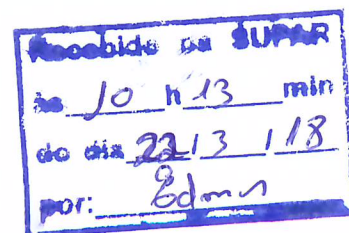 Recebido na SUPAR
às 10 h 13 min
do dia 22 / 3 / 18
por: